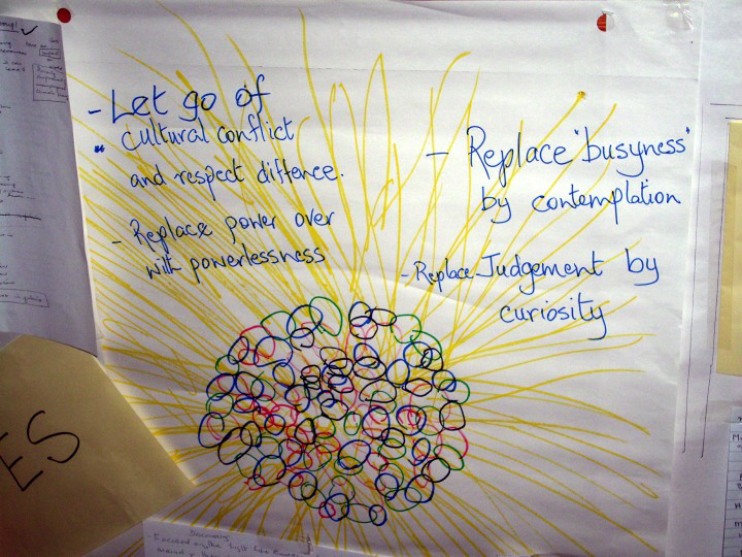 - Let go of
" cultural conflict
and respect diffence.
- Replace power over
with powerlessness
- Replace "busyness"
by contemplation
- Replace Judgement by
curiosity
ES